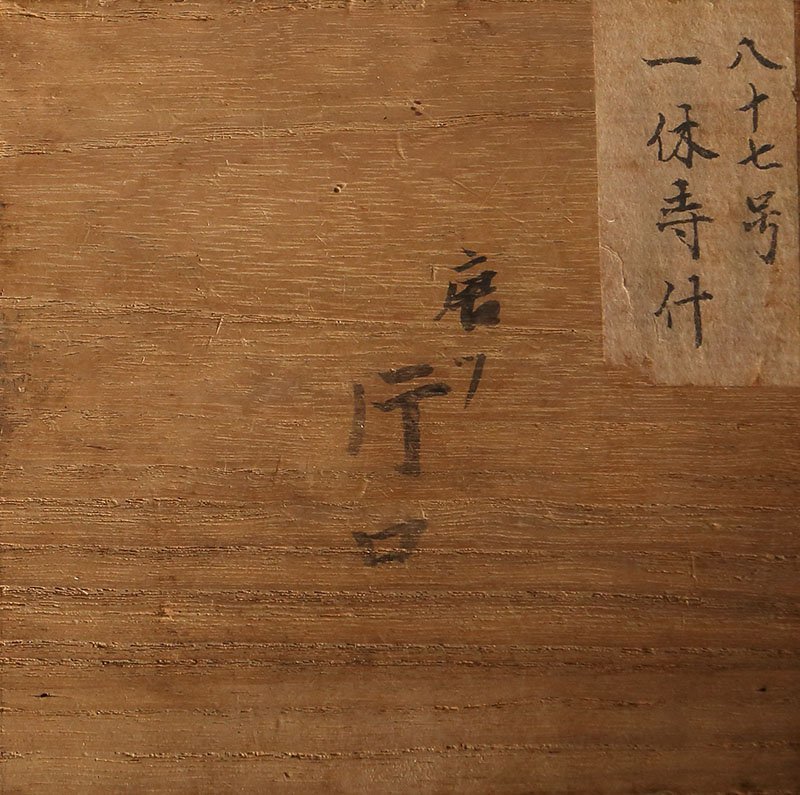 八十七号
一休寺什
唐ツ
片口